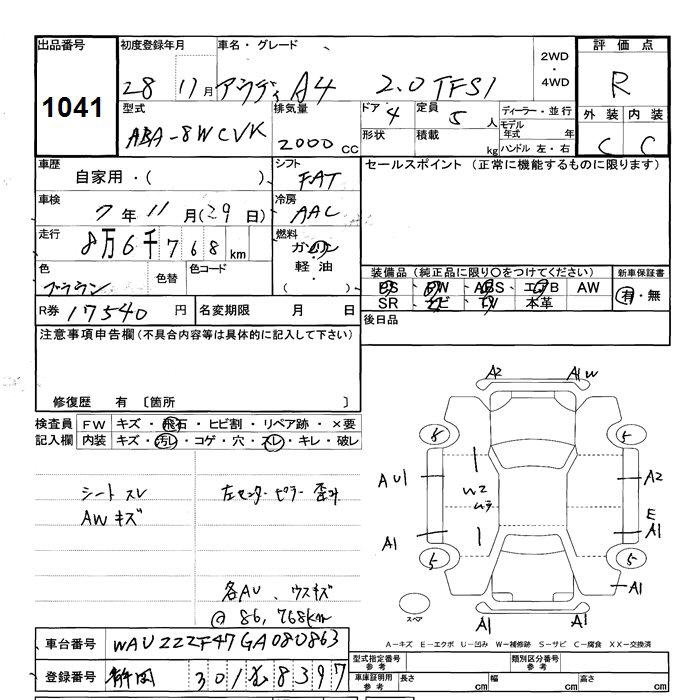 出品番号 初度登録年月 車名・グレード 評価点
1041 28 11月 アウディ A4 2.0 TFSI 2WD・4WD R
型式 排気量 ドア 4 定員 5人 ディーラー・並行 外装 内装
ABA-8WCVK 2000 CC 形状 積載 kg モデル年式 年 C C
ハンドル 左・右
車歴 シフト セールスポイント (正常に機能するものに限ります)
自家用・( ) FAT
車検 冷房
7年 11月(29日) AAC
走行 燃料
8万6千768km ガソリン
軽油
( )
色 色替 色コード 装備品 (純正品に限り○をつけてください) 新車保証書
ブラウン PS PW ABS エアB AW 有・無
SR ナビ TV 本革
R券 17540円 名変期限 月 日 後日品
注意事項申告欄(不具合内容等は具体的に記入して下さい)
修復歴 有 〔箇所 〕
検査員 FW キズ・飛石・ヒビ割・リペア跡・×要
記入欄 内装 キズ・汚レ・コゲ・穴・スレ・キレ・破レ
シート スレ 左センターピラー 歪み
AW キズ
各AU、ウスキズ
@ 86,768km
A2 A1 W
8 5
AU1 W2 A2
ムラ
E
A1 A1
5 5
A1
スペア A1 A1
A－キズ E－エクボ U－凹み W－補修跡 S－サビ C－腐食 XX－交換済
車台番号 WAUZZZF47GA080863
登録番号 静岡 301 8397
型式指定番号 参考 類別区分番号 参考
車庫証明用 参考 長さ cm 幅 cm 高さ cm